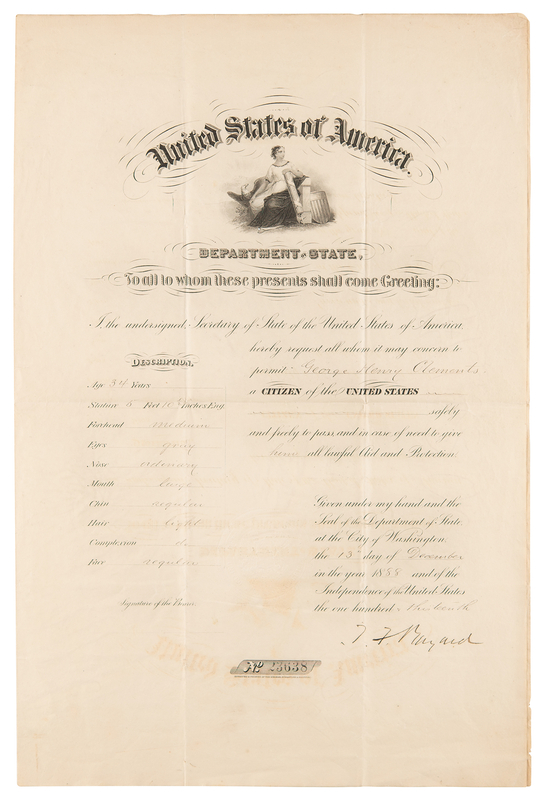 United States of America.
DEPARTMENT OF STATE,
To all to whom these presents shall come Greeting:
I the undersigned, Secretary of State of the United States of America,
hereby request all whom it may concern to
permit George Henry Clements
a CITIZEN of the UNITED STATES
safely
and freely to pass, and in case of need to give
him all lawful Aid and Protection.
DESCRIPTION.
Age 34 Years
Stature 5 Feet 10 Inches Eng.
Forehead medium
Eyes grey
Nose ordinary
Mouth large
Chin regular
Hair light
Complexion do
Face regular
Signature of the Bearer
Given under my hand and the
Seal of the Department of State,
at the City of Washington,
the 13th day of December
in the year 1888 and of the
Independence of the United States
the one hundred thirteenth
T. F. Bayard
No 23638